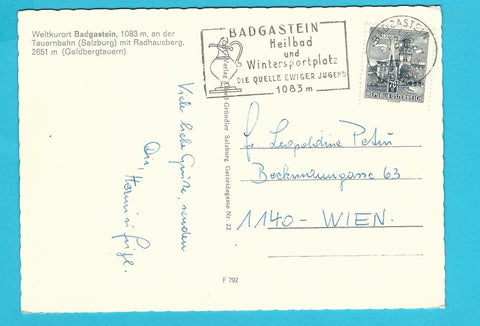 Weltkurort Badgastein, 1083 m, an der
Tauernbahn (Salzburg) mit Radhausberg,
2651 m (Goldbergtauern)
BADGASTEIN
Heilbad
und
Wintersportplatz
DIE QUELLE EWIGER JUGEND
1083 m
BADGASTEIN
REPUBLIK ÖSTERREICH
Verlag Gründler Salzburg Getreidegasse Nr. 22
Viele liebe Grüße, senden
Dir,
Fr. Leopoldine
Beckmanngasse 63
1140 - WIEN.
F 792